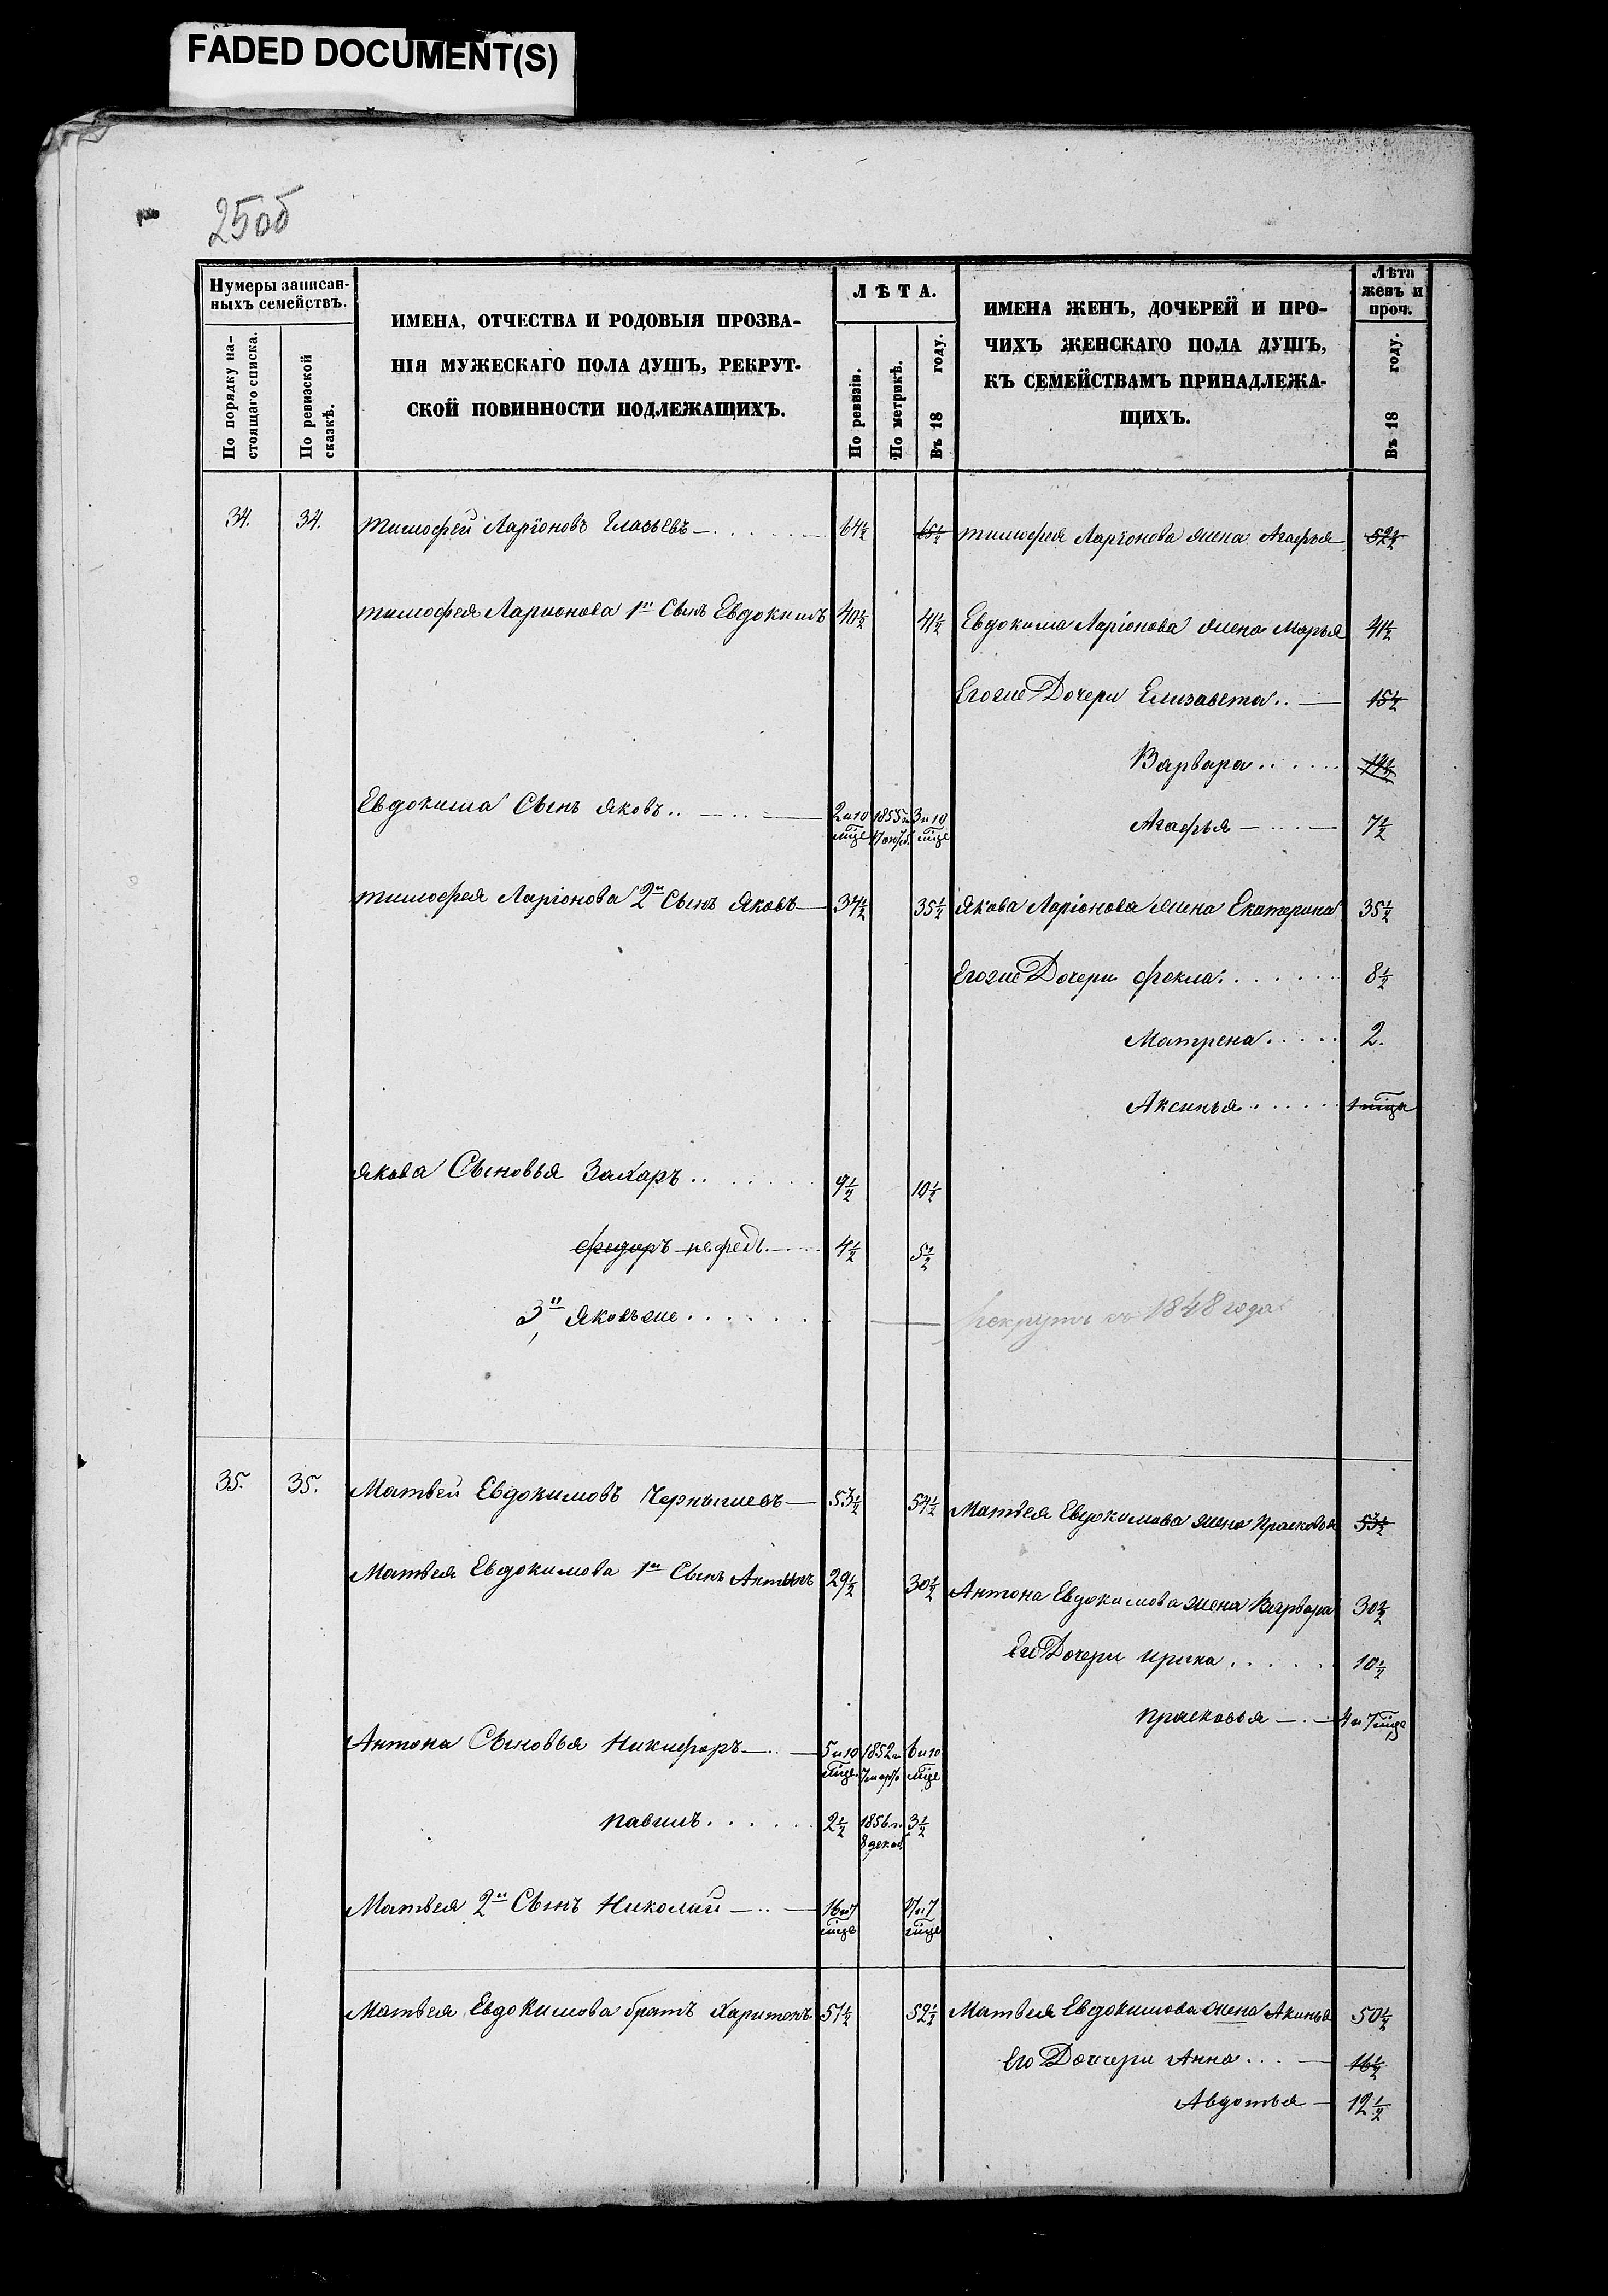 FADED DOCUMENT(S)
25об
Нумеры записан-
ныхъ семействъ.
По порядку на-
стоящаго списка.
По ревизской
сказкѣ.
ИМЕНА, ОТЧЕСТВА И РОДОВЫЯ ПРОЗВА-
НІЯ МУЖЕСКАГО ПОЛА ДУШЪ, РЕКРУТ-
СКОЙ ПОВИННОСТИ ПОДЛЕЖАЩИХЪ.
ЛѢТА.
По ревизіи.
По метрикѣ.
Въ 18 году.
ИМЕНА ЖЕНЪ, ДОЧЕРЕЙ И ПРО-
ЧИХЪ ЖЕНСКАГО ПОЛА ДУШЪ,
КЪ СЕМЕЙСТВАМЪ ПРИНАДЛЕЖА-
ЩИХЪ.
Лѣта
женъ и
проч.
Въ 18 году.
34. 34. Тимофей Ларіоновъ 64½ 65½ Тимофея Ларіонова жена Агафья 52½
Тимофея Ларионова 1й Сынъ Евдокимъ 40½ 41½ Евдокима Ларіонова жена Марья 41½
Егоже Дочери Елизавета 15½
Варвара
Евдокима Сынъ Яковъ 2 и 10 мцъ 3 и 10 мцъ Агафья 7½
Тимофея Ларіонова 2й Сынъ Яковъ 34½ 35½ Якова Ларіонова жена Екатерина 35½
Егоже Дочери Фекла 8½
Матрена 2.
Аксинья
Якова Сыновья Захаръ 9½ 10½
Федоръ нефедъ 4½ 5½
3й Яковъ же рекрутъ 1848 года
35. 35. Матвей Евдокимовъ Чернышевъ 53½ 54½ Матвея Евдокимова жена Прасковья 53½
Матвея Евдокимова 1й Сынъ Антонъ 29½ 30½ Антона Евдокимова жена Варвара 30½
Его Дочери Ирина 10½
Прасковья 4 и 7 мцъ
Антона Сыновья Никифоръ 5 и 10 мцъ 1852 г 7 марта 6 и 10 мцъ
Павилъ 2½ 1856 г 8 декаб 3½
Матвея 2й Сынъ Николай 16 и 7 мцъ 17 и 7 мцъ
Матвея Евдокимова братъ Харитонъ 51½ 52½ Матвея Евдокимова жена Акинья 50½
Его Доччери Анна 16½
Авдотья 12½